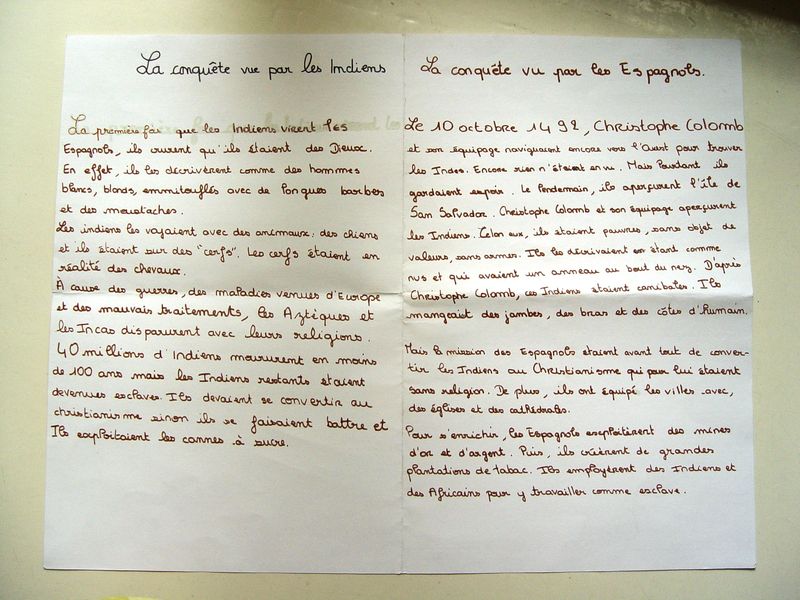 La conquête vue par les Indiens
La première fois que les Indiens virent les
Espagnols, ils crurent qu'ils étaient des Dieux.
En effet, ils les décrivèrent comme des hommes
blancs, blonds, emmitouflés avec de longues barbes
et des moustaches.
Les indiens les voyaient avec des animaux: des chiens
et ils étaient sur des "cerfs". Les cerfs étaient en
réalité des chevaux.
À cause des guerres, des maladies venues d'Europe
et des mauvais traitements, les Aztèques et
les Incas disparurent avec leurs religions.
40 millions d'Indiens moururent en moins
de 100 ans mais les Indiens restants étaient
devenues esclaves. Ils devaient se convertir au
christianisme sinon ils se faisaient battre et
Ils exploitaient les cannes à sucre.
La conquéte vu par les Espagnols.
Le 10 octobre 1492, Christophe Colomb
et son équipage naviguaient encore vers l'Ouest pour trouver
les Indes. Encore rien n'étaient en vu. Mais Pourtant ils
gardaient espoir. Le lendemain, ils aperçurent l'île de
San Salvador. Christophe Colomb et son équipage aperçurent
les Indiens. Celon eux, ils étaient pauvres, sans objet de
valeurs, sans armes. Ils les décrivaient en étant comme
nus et qui avaient un anneau au bout du nez. D'après
Christophe Colomb, ces Indiens étaient canibales. Ils
mangeait des jambes, des bras et des côtes d'Humain.
Mais la mission des Espagnols étaient avant tout de conver-
tir les Indiens au Christianisme qui pour lui étaient
sans religion. De plus, ils ont équipé les villes avec,
des églises et des cathédrales.
Pour s'enrichir, les Espagnols exploitèrent des mines
d'or et d'argent. Puis, ils créèrent de grandes
plantations de tabac. Ils employèrent des Indiens et
des Africains pour y travailler comme esclave.